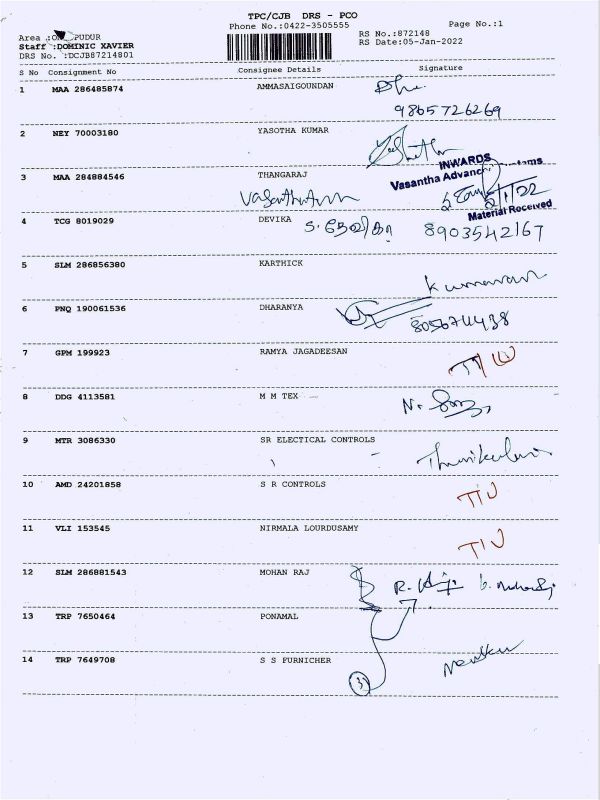 TPC/CJB DRS - PCO
Phone No.:0422-3505555 Page No.:1
Area : PUDUR RS No.:872148
Staff :DOMINIC XAVIER RS Date:05-Jan-2022
DRS No. :DCJB87214801
S No Consignment No Consignee Details Signature
1 MAA 286485874 AMMASAIGOUNDAN
9865726269
2 NEY 70003180 YASOTHA KUMAR
INWARDS
3 MAA 284884546 THANGARAJ Vasantha
Material Received
4 TCG 8019029 DEVIKA S. தேவிகா 8903542167
5 SLM 286856380 KARTHICK
6 PNQ 190061536 DHARANYA
7 GPM 199923 RAMYA JAGADEESAN
8 DDG 4113581 M M TEX
9 MTR 3086330 SR ELECTICAL CONTROLS
10 AMD 24201858 S R CONTROLS
11 VLI 153545 NIRMALA LOURDUSAMY
12 SLM 286881543 MOHAN RAJ
13 TRP 7650464 PONAMAL
14 TRP 7649708 S S FURNICHER
3